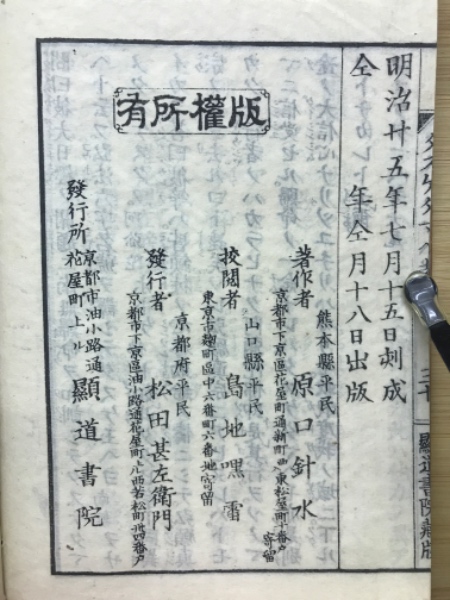 明治廿五年七月十五日刻成
仝年仝月十八日出版
版權所有
熊本縣平民
著作者 原口針水
京都市下京區花屋町通新町西入東松屋町十番戶寄留
山口縣平民
校閲者 島地嘿雷
東京市麴町區中六番町六番地寄留
京都府平民
發行者 松田甚左衞門
京都市下京區油小路通花屋町上ル西若松町卅四番戶
發行所 京都市油小路通花屋町上ル 顯道書院
三十
顯道書院藏版